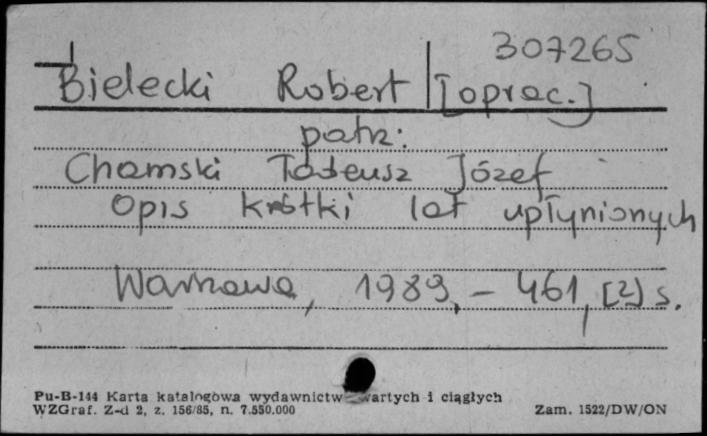 307265
Bielecki Robert [oprac.]
patrz:
Chamski Tadeusz Józef
Opis krótki lat upłynionych
Warszawa, 1989, - 461, [2] s.
Pu-B-144 Karta katalogowa wydawnictw zwartych i ciągłych
WZGraf. Z-d 2, z. 156/85, n. 7.550.000
Zam. 1522/DW/ON